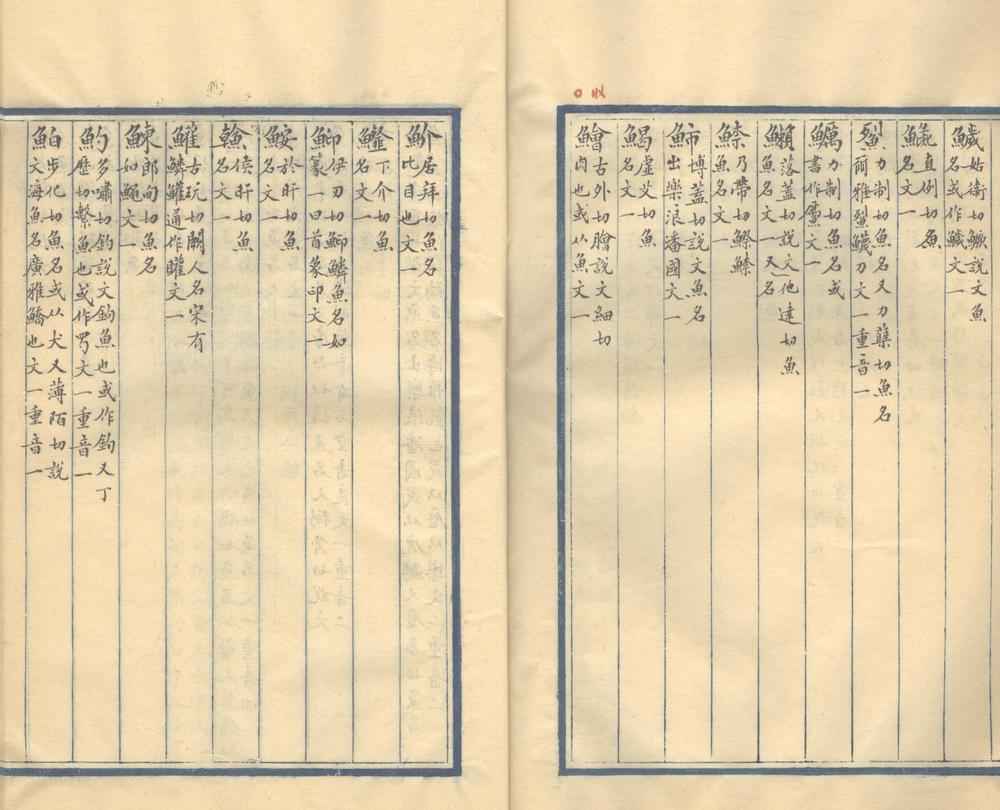 鱥姑衛切鱖說文魚
名或作鱥文一
直例切魚
名文一
鱱力制切魚名或
書作鱱文一
鮤力制切魚名又力蘖切魚名
爾雅鮤鱴刀文一重音一
䲚落蓋切說文一他達切魚
魚名文一又名
䱞乃帶切鰶䱞
魚名文一
䰽博蓋切說文魚名
出樂浪潘國文一
虛艾切魚
名文一
鱠古外切膾說文細切
肉也或从魚文一
魪居拜切魚名
比目也文一
下介切魚
名文一
鮣伊刃切鮣鱗魚名如
篆一曰首篆印文一
鮟於旰切魚
名文一
侯旰切魚
名文一
鱹古玩切闕人名宋有
鱗鱹通作矔文一
鰊郎甸切魚名
如鱦文一
魡多嘯切釣說文鉤魚也或作鈎又丁
歷切繫魚也或作文一重音一
鮊步化切魚名或从犬又薄陌切說
文海魚名廣雅鱎也文一重音一